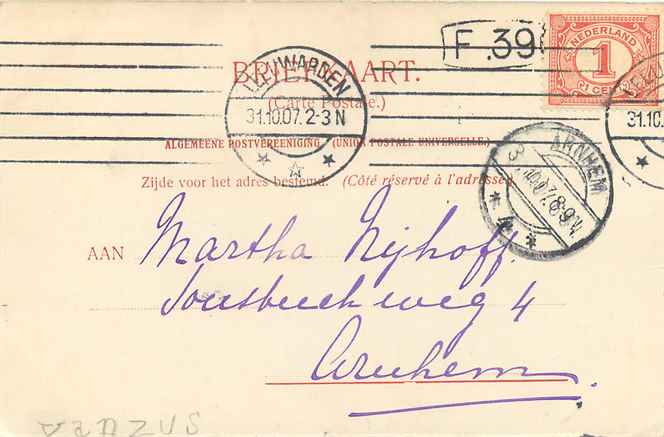 F .39
NEDERLAND
1
CENT
BRIEFKAART.
(Carte Postale.)
LEEUWARDEN
31.10.07. 2-3 N
31.10.
ALGEMEENE POSTVEREENIGING (UNION POSTALE UNIVERSELLE.)
ARNHEM
8-9 N.
4
Zijde voor het adres bestemd. (Côté réservé à l'adresse.)
AAN Martha Nijhoff,
Sonsbeekweg 4
Arnhem.